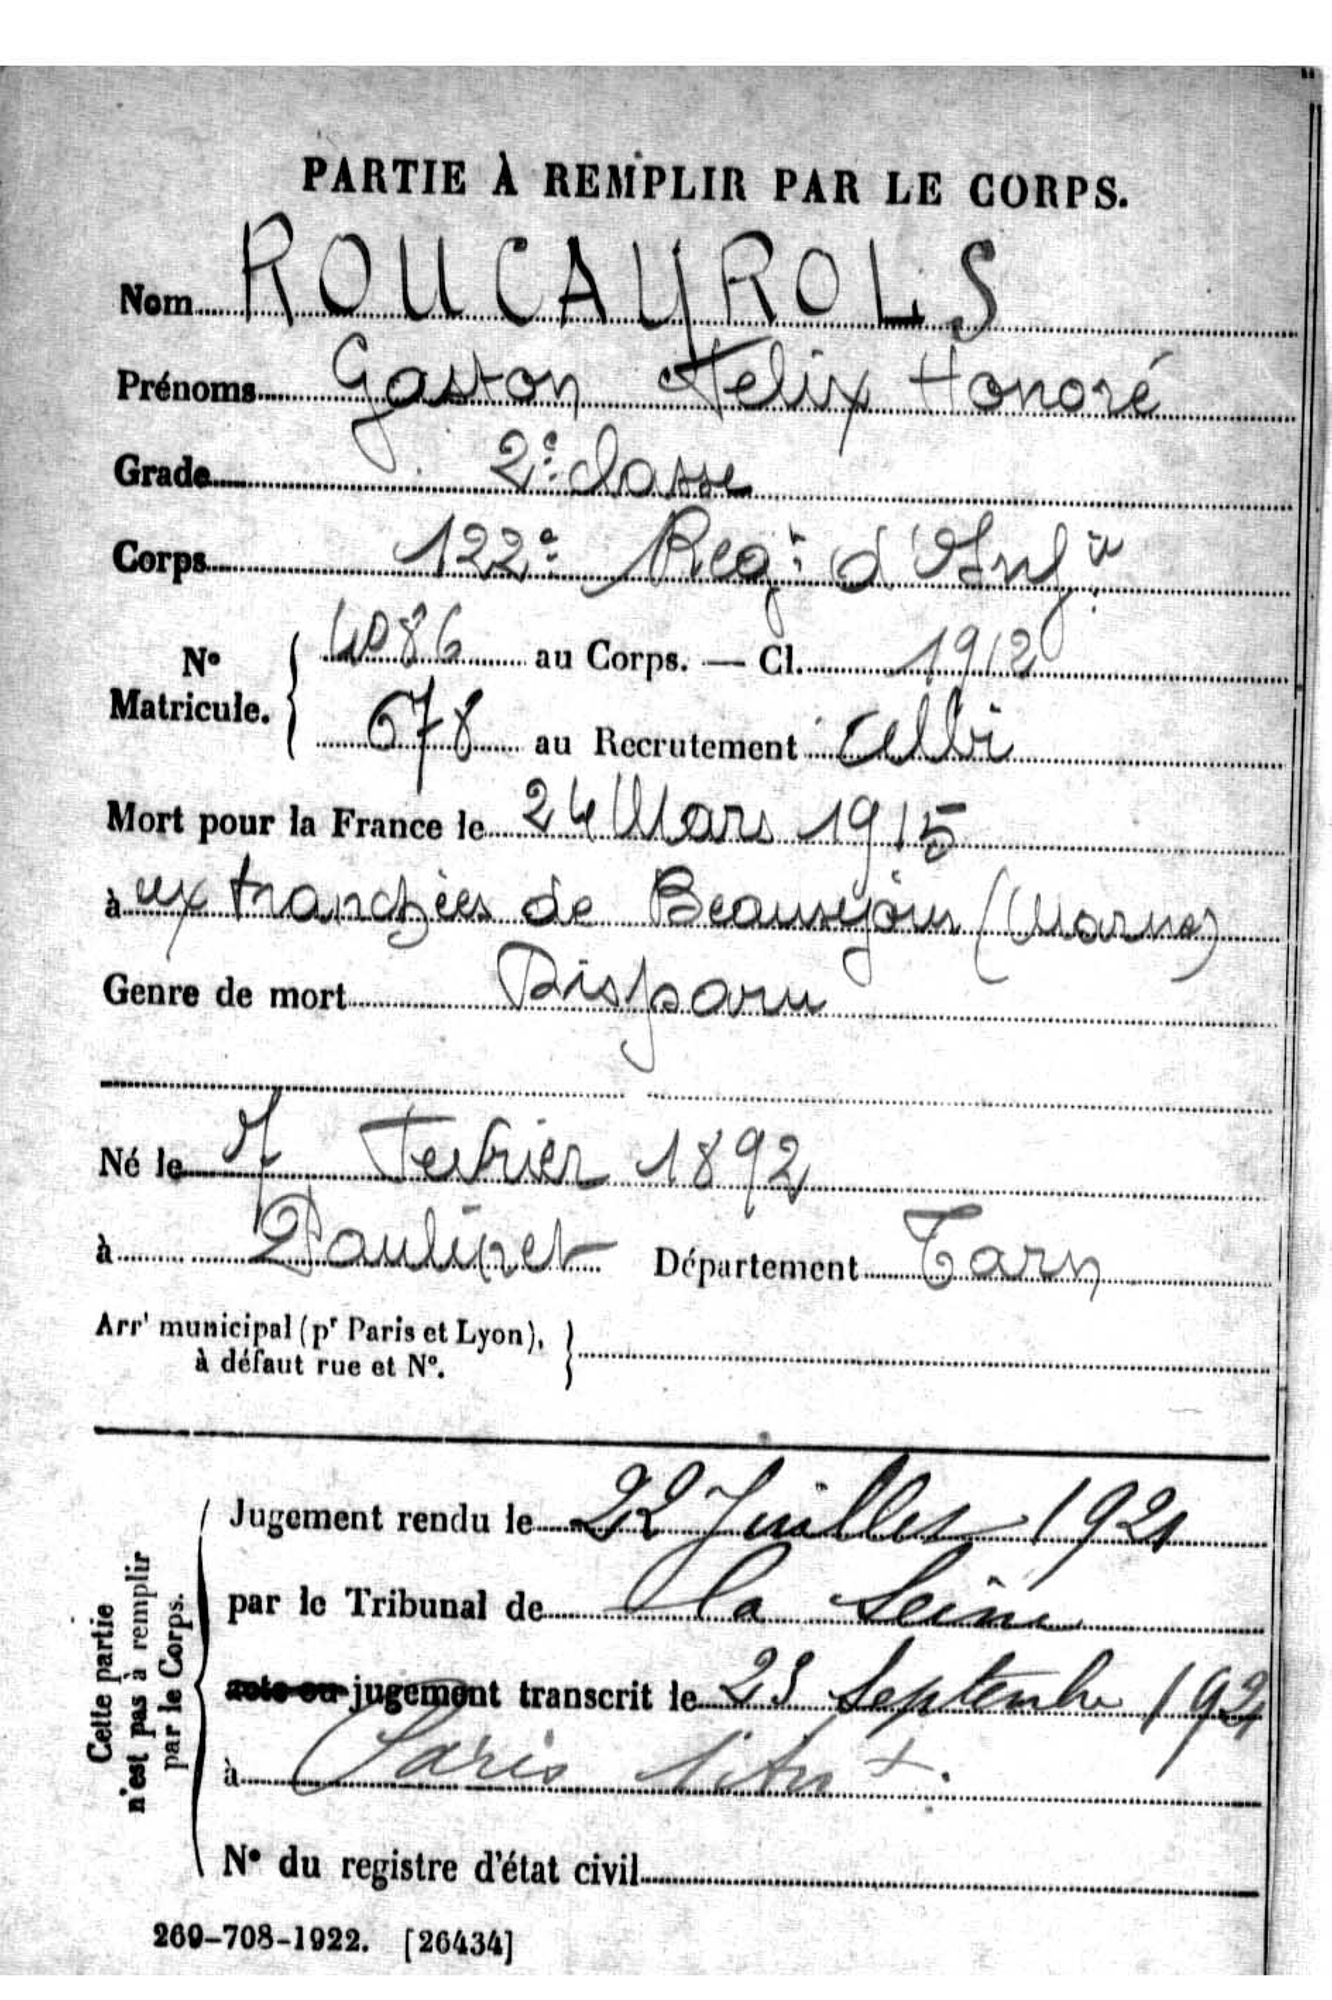 PARTIE À REMPLIR PAR LE CORPS.
Nom ROUCAYROLS
Prénoms Gaston Felix Honoré
Grade 2e classe
Corps 122e Regt d'Infie
No Matricule. 4086 au Corps. — Cl. 1912
678 au Recrutement Albi
Mort pour la France le 24 Mars 1915
à ux tranchées de Beausejour (Marne)
Genre de mort Disparu
Né le 7 Fevrier 1892
à Paulinet Département Tarn
Arrt municipal (pr Paris et Lyon),
à défaut rue et No.
Cette partie
n'est pas à remplir
par le Corps.
Jugement rendu le 22 Juillet 1921
par le Tribunal de la Seine
acte ou jugement transcrit le 23 Septembre 1921
à Paris
No du registre d'état civil
269-708-1922. [26434]